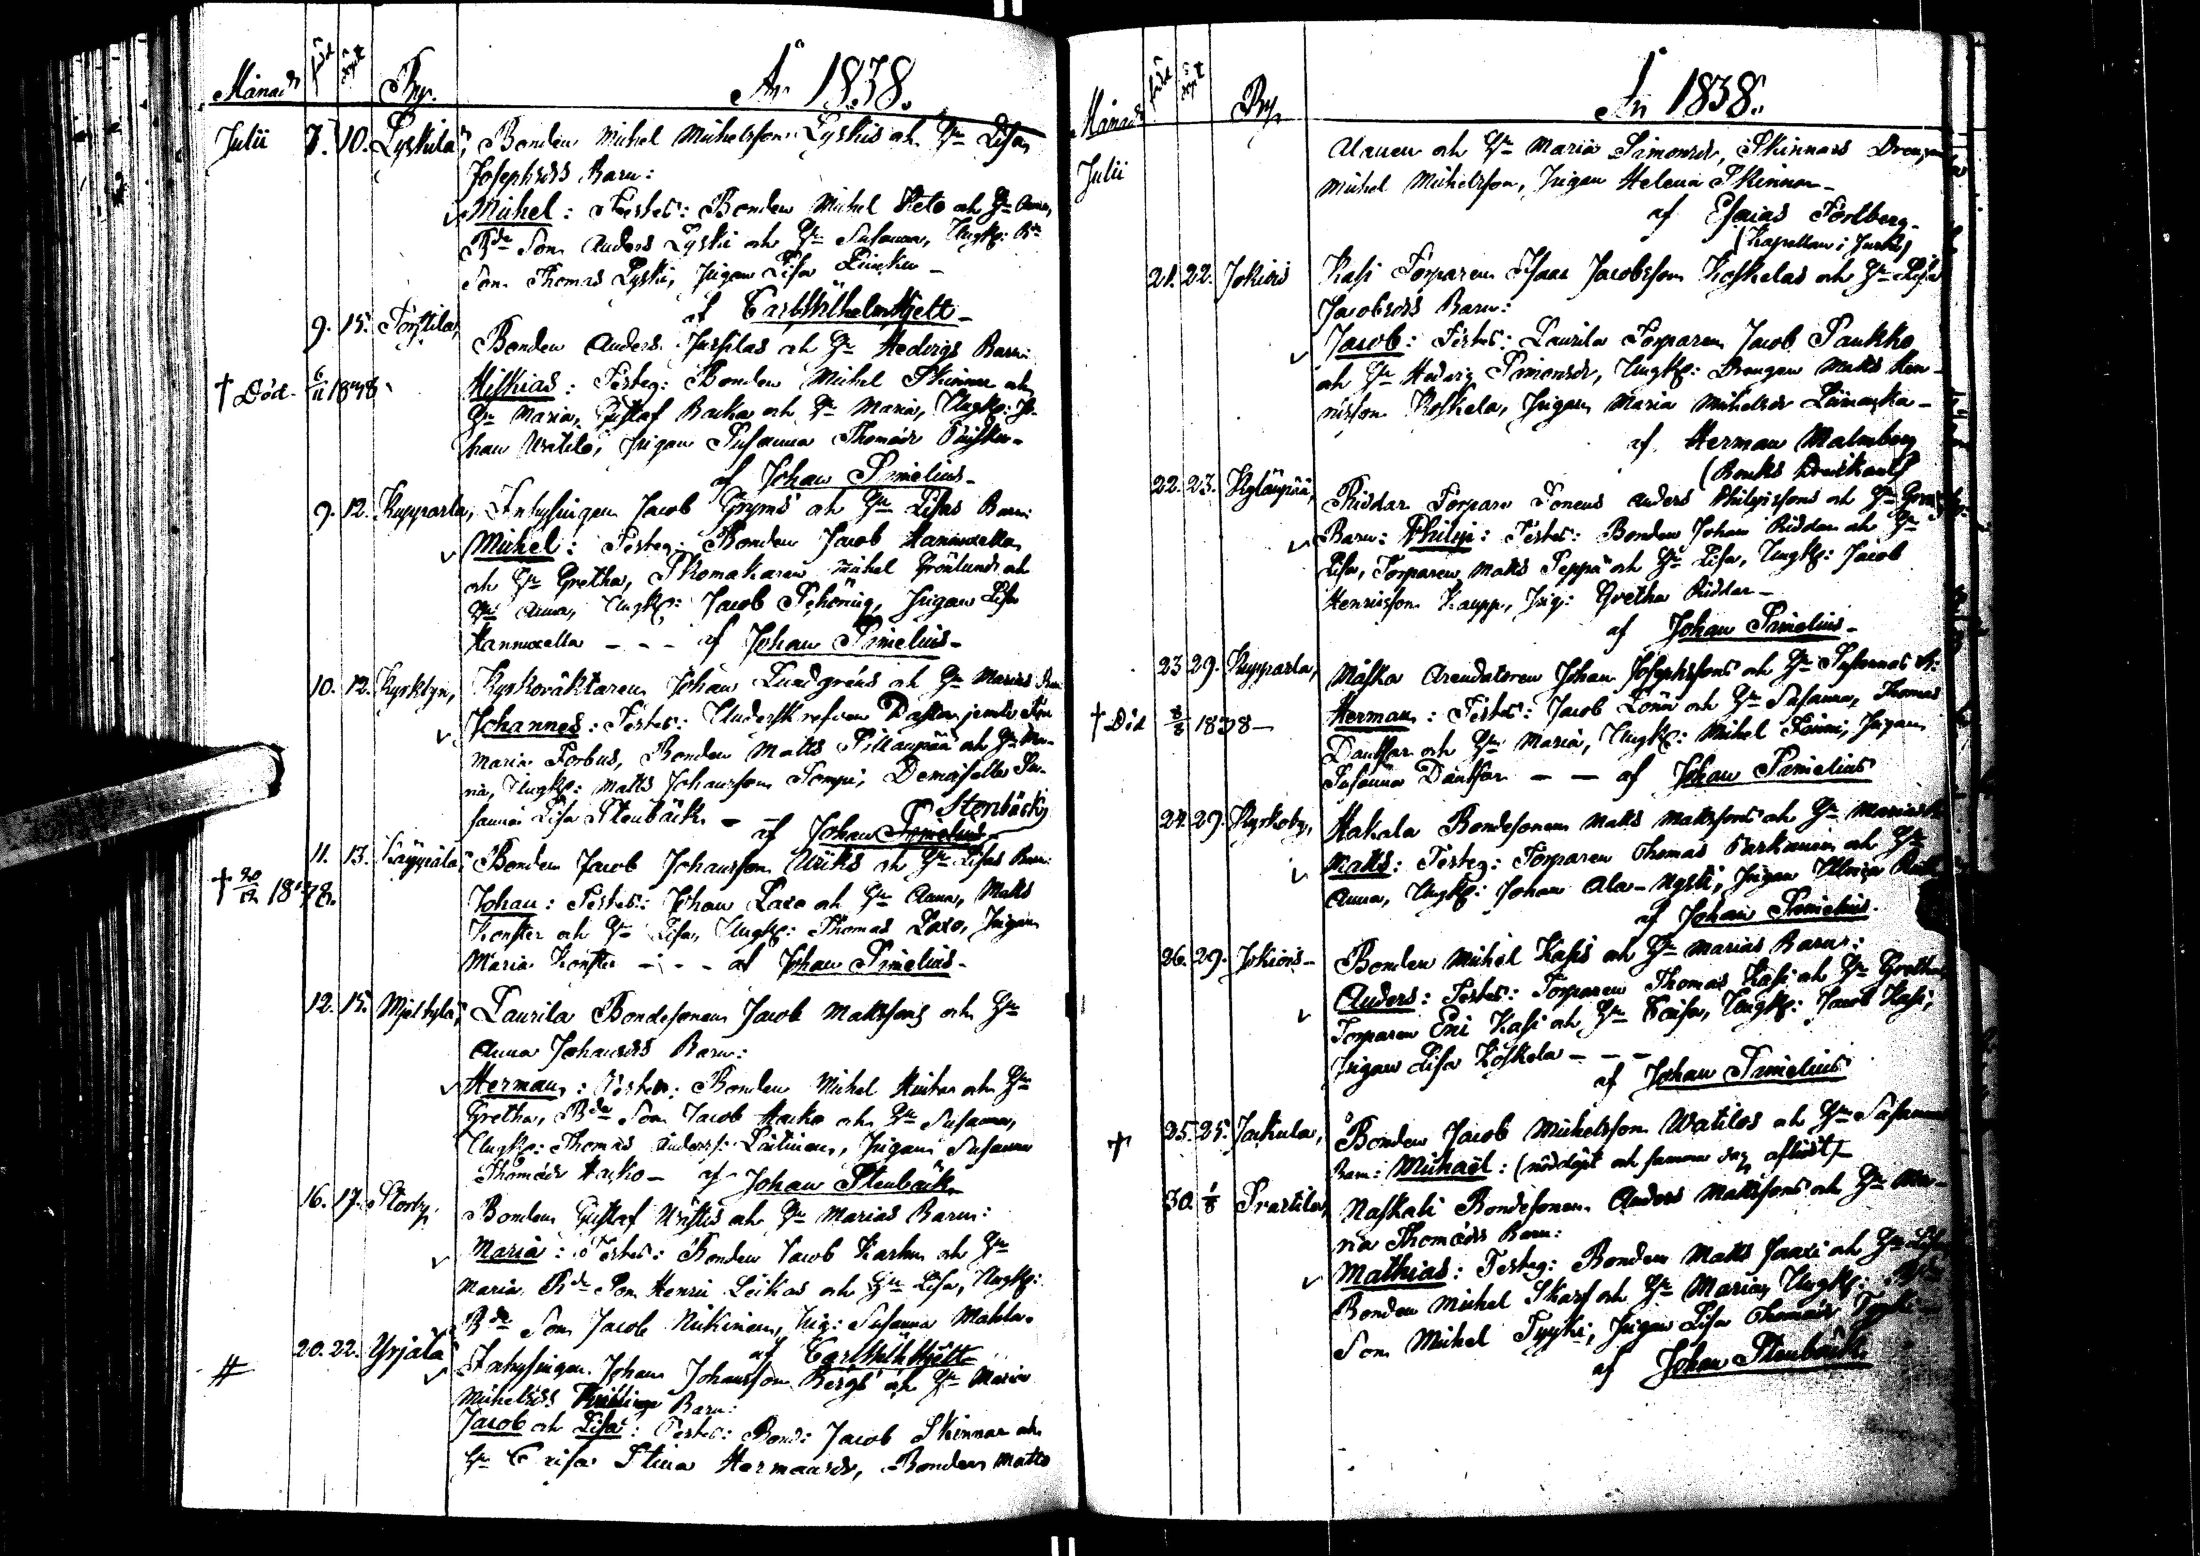 Månad född döpt By. År 1838.
Julii 7. 10. Lyskilä, Bonden Michel Michelsson Lyskis och Hu Lisa
Josephsdrs Barn:
Michel: Testes: Bonden Michel Keto och Hu Anna,
Bde Son Anders Lyski och Hu Susanna, Ungk: Bde
Son Thomas Lyski, Pigan Lisa
af Carl Wilhelm Hjelt
9. 15. Torttila, Bonden Anders Jussilas och Hu Hedvigs Barn:
† Död 6/11 1838 Mathias: Testes: Bonden Michel Skinnar och
Hu Maria, Gustaf Backa och Hu Maria, Ungk: Jo-
han Uotila, Pigan Susanna Thomasdr
af Johan Simelius
9. 12. Kupparla, Inhysingen Jacob Gryms och Hu Lisas Barn:
Michel: Testes: Bonden Jacob Hannuxella
och Hu Gretha, Skomakaren Michel Grönlund och
Hu Anna, Ungk: Jacob Schöning, Pigan Lisa
Hannuxella - - - af Johan Simelius
10. 12. Kyrkbyn, Kyrkoväktaren Johan Lundgréns och Hu Marias Barn
Johannes: Testes: Underskrefven Pastor jemte Fru
Maria Forbus, Bonden Matts Sillanpää och Hu Ma-
ria, Ungk: Matts Johansson Sompi, Demoiselle Su-
sanna Lisa Stenbäck - - af Johan Simelius Stenbäck
11. 13. Käyppälä, Bonden Jacob Johansson Uriks och Hu Lisas Barn:
† 20/12 1838. Johan: Testes: Johan Laxo och Hu Anna, Matts
Konster och Hu Lisa, Ungk: Thomas Laxo, Pigan
Maria Konster - - - af Johan Simelius
12. 15. Mjölkylä, Laurila Bondesonen Jacob Mattssons och Hu
Anna Johansdrs Barn:
Herman: Testes: Bonden Michel och Hu
Gretha, Bde Son Jacob Hacko och Hu Susanna,
Ungk: Thomas Anderss: Lautinen, Pigan Susanna
Thomasdr Hacko - af Johan Stenbäck
16. 17. Storby, Bonden Gustaf och Hu Marias Barn:
Maria: Testes: Bonden Jacob Karhu och Hu
Maria Bde Son Henric Leikas och Hu Lisa, Ungk:
Bde Son Jacob Nikinen, Pig: Susanna Mahla
af Carl Wilh Hjelt
# 20. 22. Yrjälä, Inhysingen Johan Johansson Bergs och Hu Maria
Michelsdrs Tvillinge Barn:
Jacob och Lisa: Testes: Bond: Jacob Skinnar och
Hu Caisa Stina Hermansdr, Bonden Matts
Månad född döpt By. År 1838.
Julii och Hu Maria Simonsdr, Skinnars Drengen
Michel Michelsson, Pigan Helena Skinnar
af Esaias Törlberg
(Kapellan i
21. 22. Jokiois Kasi Torparen Isaac Jacobsson Koskelas och Hu Lisa
Jacobsdrs Barn:
Jacob: Testes: Laurila Torparen Jacob Paukko
och Hu Hedvig Simonsdr, Ungk: Drengen Matts Hen-
ricsson Koskela, Pigan Maria Michelsdr
af Herman Malmberg
22. 23. Kylänpää, Riddar Torparen Sonens Anders Philipssons och Hu Greta
Barn: Philip: Testes: Bonden Johan Riddar och Hu
Lisa, Torparen Matts Seppä och Hu Lisa, Ungk: Jacob
Henricsson Kaupp, Pig: Gretha Riddar -
af Johan Simelius
23 29. Kupparla, Mäska Arendatoren Johan Josephssons och Hu Susannas B:
† Död 8/8 1838 - Herman: Testes: Jacob och Hu Susanna, Thomas
Danttar och Hu Maria, Ungk: Michel Pigan
Susanna Danttar - - af Johan Simelius
24. 29. Kyrkoby, Hakala Bondesonen Matts Mattssons och Hu Marias
Matts: Testes: Torparen Thomas Parkanin och Hu
Anna, Ungk: Johan Ala-Nyski, Pigan Ulrica
af Johan Simelius.
26. 29. Jokiois - Bonden Michel Kasis och Hu Marias Barn:
Anders: Testes: Torparen Thomas Kasi och Hu Gretha
Torparen Eric Kasi och Hu Caisa, Ungk: Jacob Kasi,
Pigan Lisa Koskela - - -
af Johan Simelius
† 25. 25. Jackula, Bonden Jacob Michelsson Watilos och Hu Susanna
Barn: Michaël: (nöddöpt och samma dag aflidit)
30. 1/8 Svartila, Naskali Bondesonen Anders Mattssons och Hu Ma-
ria Thomasdrs Barn:
Mathias: Testes: Bonden Matts Jaaxi och Hu Lisa
Bonden Michel Skarf och Hu Maria, Ungk: Bde
Son Michel Tyyki, Pigan Lisa Thomasdr Tyyki
af Johan Stenbäck